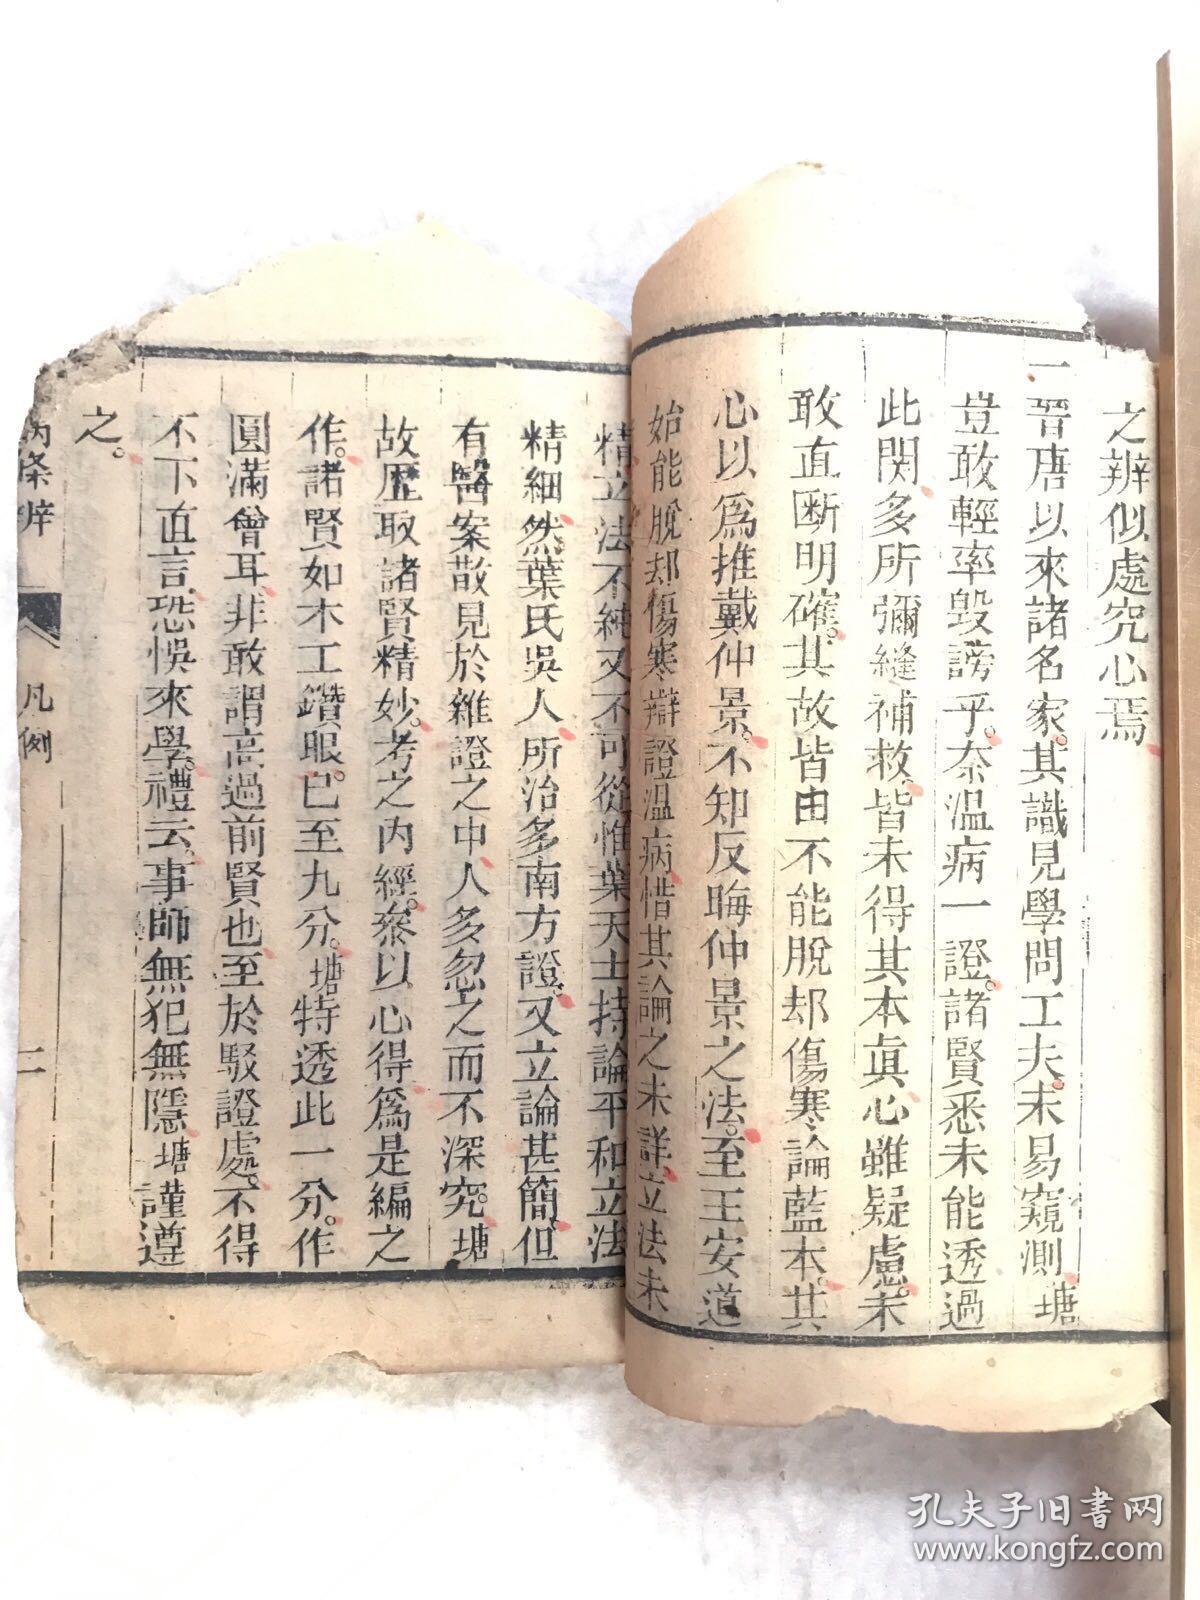 之辨似處究心焉
一晉唐以來諸名家。其識見學問工夫。未易窺測。塘
豈敢輕率毀謗乎。奈温病一證。諸賢悉未能透過
此関。多所彌縫補救。皆未得其本眞。心雖疑慮。未
敢直断明確。其故皆由不能脫却傷寒論藍本。其
心以爲推戴仲景。不知反晦仲景之法。至王安道
始能脫却傷寒辯證温病。惜其論之未詳。立法未
精立法不純又不可從惟葉天士持論平和立法
精細。然葉氏吳人。所治多南方證。又立論甚簡。但
有醫案散見於雜證之中。人多忽之而不深究。塘
故歷取諸賢精妙。考之內經。叅以心得。爲是編之
作。諸賢如木工鑽眼。已至九分。塘特透此一分。作
圓滿曾耳。非敢謂高過前賢也。至於駁證處。不得
不下直言。恐悞來學。禮云。事師無犯無隱。塘謹遵
之。
病條辨
凡例
二
孔夫子旧书网
www.kongfz.com